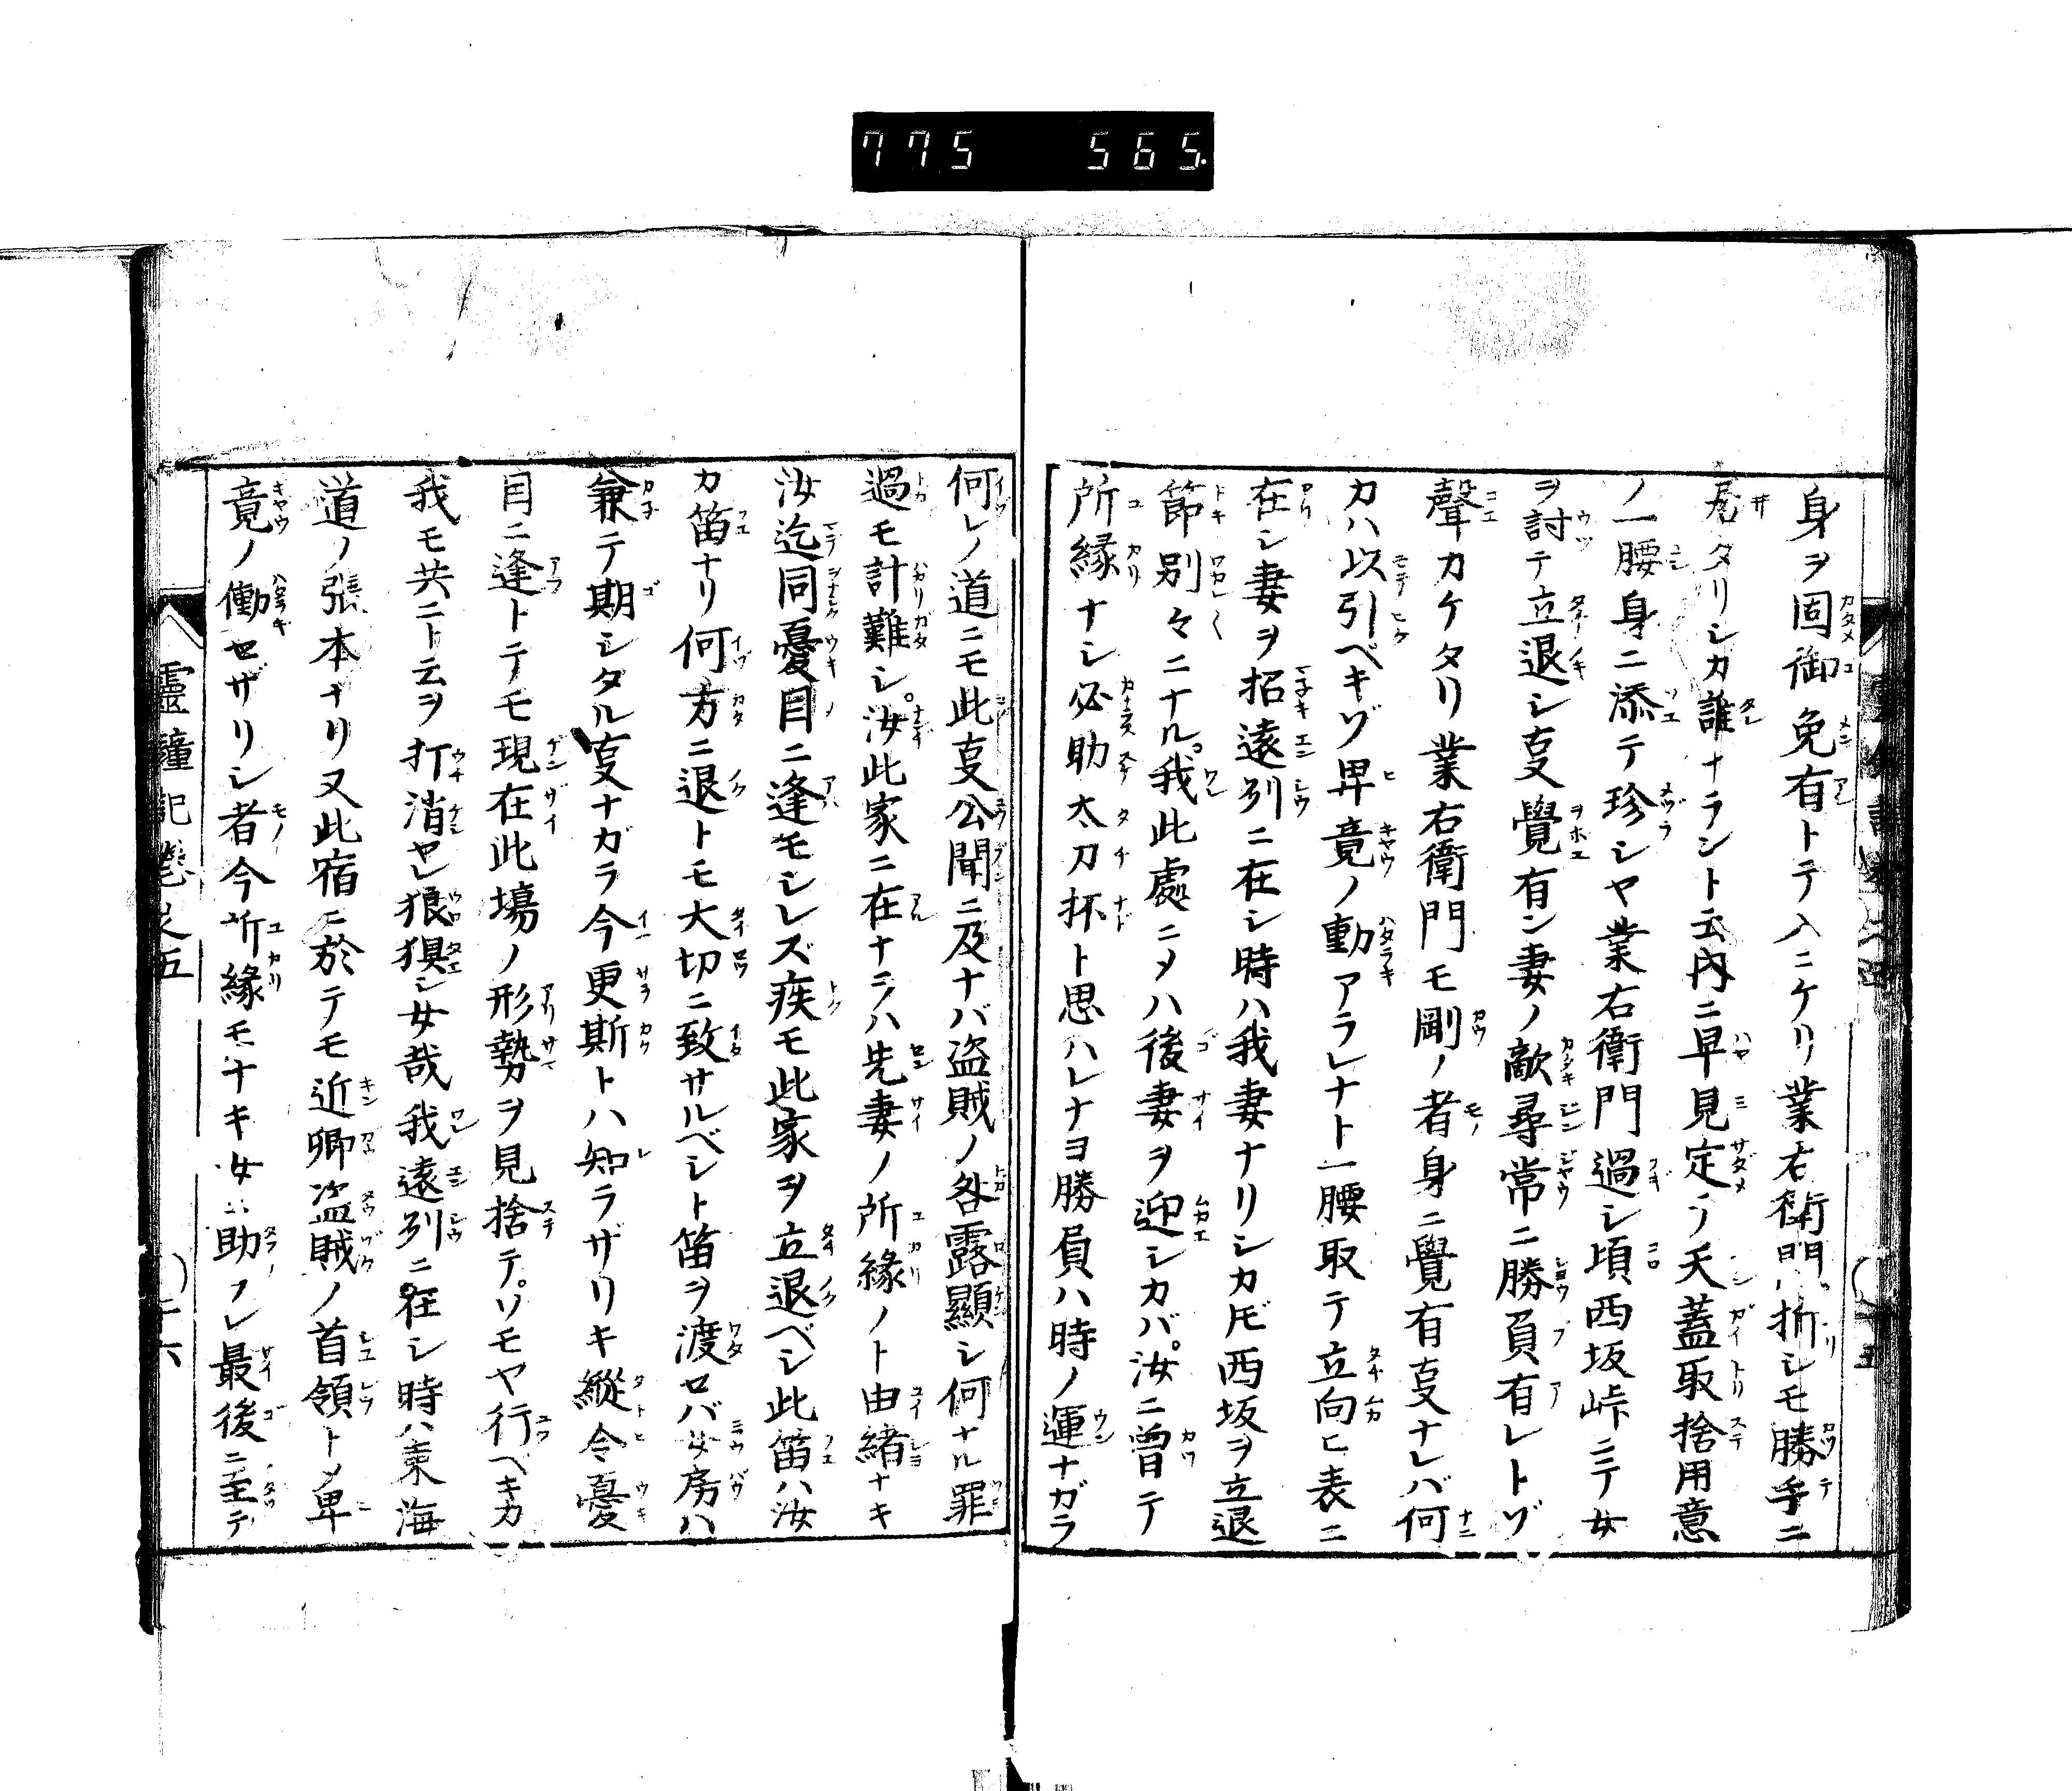 775 565.
身ヲ固御免有トテ入ニケリ業右衛門ハ折シモ勝手ニ
居タリシカ誰ナラント云内ニ早見定テ天蓋取捨用意
ノ一腰身ニ添テ珍シヤ業右衛門過シ頃西坂峠ニテ女
ヲ討テ立退シ叓覺有ン妻ノ敵尋常ニ勝負有レトゾ
聲カケタリ業右衛門モ剛ノ者身ニ覺有叓ナレバ何
カハ以引ベキゾ卑竟ノ動アラレナト一腰取テ立向ヒ表ニ
在シ妻ヲ招遠州ニ在シ時ハ我妻ナリシカ𪜈西坂ヲ立退
節別々ニナル我此處ニヲハ後妻ヲ迎シカバ汝ニ曽テ
所縁ナシ必助太刀抔ト思ハレナヨ勝負ハ時ノ運ナガラ
何レノ道ニモ此叓公聞ニ及ナバ盗賊ノ咎露顯シ何ナル罪
過モ計難シ汝此家ニ在ナラハ先妻ノ所縁ノト由緒ナキ
汝迄同憂目ニ逢モシレズ疾モ此家ヲ立退ベシ此笛ハ汝
カ笛ナリ何方ニ退トモ大切ニ致サルベシト笛ヲ渡セバ女房ハ
兼テ期シタル叓ナガラ今更斯トハ知ラザリキ縦令憂
目ニ逢トテモ現在此場ノ形勢ヲ見捨テソモヤ行ベキカ
我モ共ニト云ヲ打消ヤレ狼狽シ女哉我遠州ニ在シ時ハ東海
道ノ張本ナリ又此宿ニ於テモ近卿盗賊ノ首領トメ卑
竟ノ働セザリシ者今所縁モナキ女ニ助ラレ最後ニ至テ
靈瞳記巻之五
十六